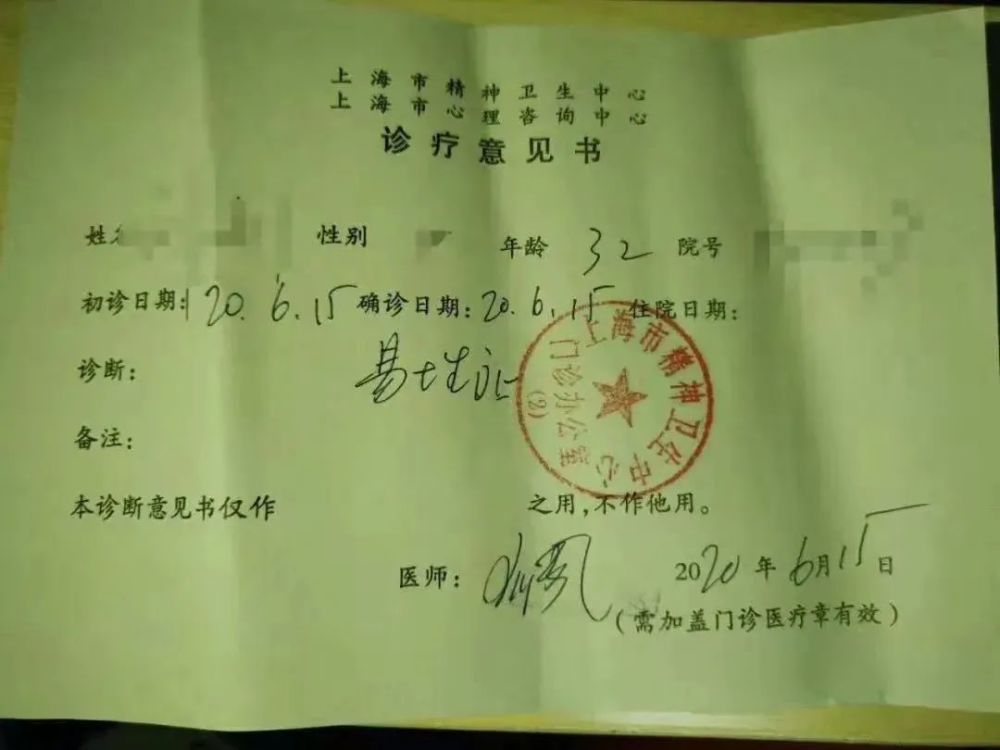 上海市精神卫生中心
上海市心理咨询中心
诊疗意见书
姓名 性别 年龄 32 院号
初诊日期: 20.6.15 确诊日期: 20.6.15 住院日期:
诊断: 易性症
备注:
上海市精神卫生中心
门诊办公室
(2)
本诊断意见书仅作 之用,不作他用。
医师: 2020年6月15日
(需加盖门诊医疗章有效)